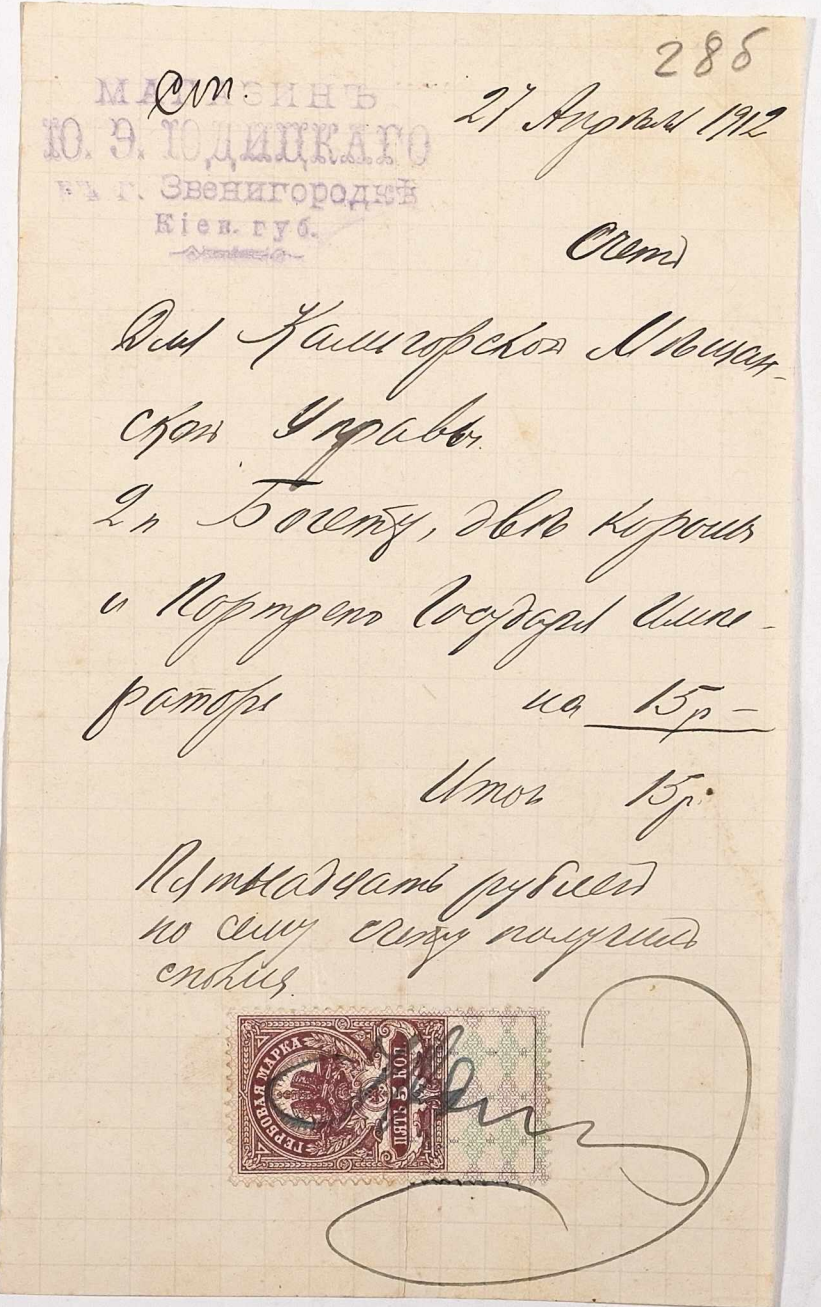 286
Сп.
МАГАЗИНЪ
27 Апреля 1912
Ю. Э. ЮДИЦКАГО
въ г. Звенигородкѣ
Кіев. губ.
Счетъ
Для Калигорской Мѣщан-
ской Управы
2 Богету, двѣ короны
и Портретъ Государя Импе-
ратора на 15р –
Итого 15р.
Пятнадцать рублей
по сему счету получилъ
сполна
ГЕРБОВАЯ МАРКА
ПЯТЬ 5 КОП